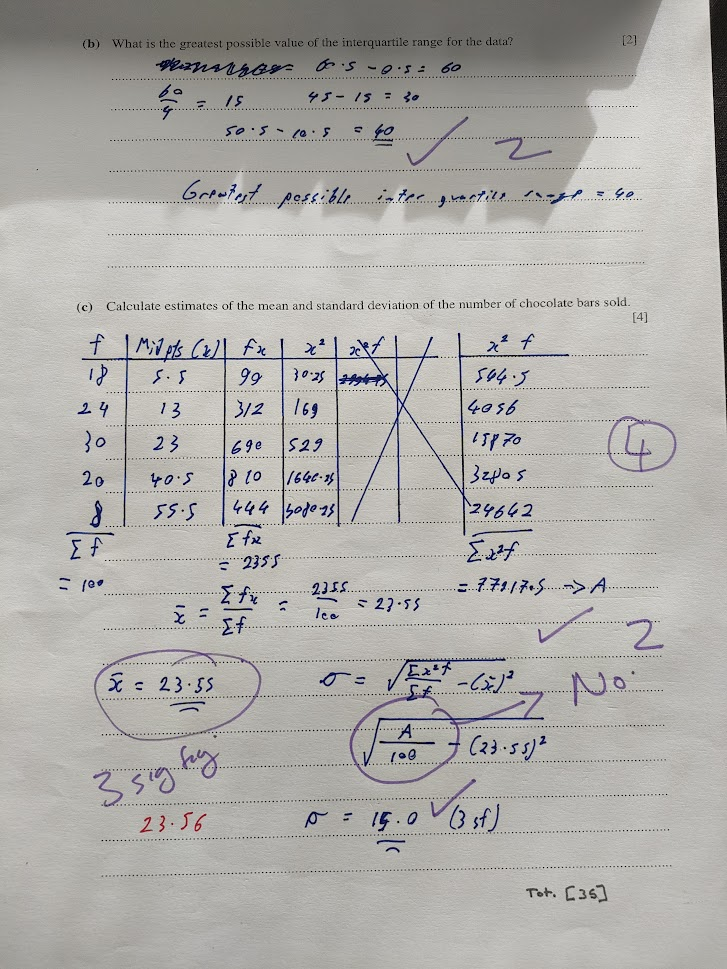 (b) What is the greatest possible value of the interquartile range for the data? [2]
0.5 - 0.5 = 60
60/4 = 15 45 - 15 = 30
50.5 - 10.5 = 40
2
Greatest possible inter quartile range = 40
(c) Calculate estimates of the mean and standard deviation of the number of chocolate bars sold.
[4]
f Midpts (x) fx x² x²f x² f
18 5.5 99 30.25 544.5
24 13 312 169 4056
30 23 690 529 15870
20 40.5 810 1640.25 32805
8 55.5 444 3080.25 24642
4
Σf Σfx Σx²f
= 100 = 2355 = 77917.5 → A
x̄ = Σfx/Σf = 2355/100 = 23.55
2
x̄ = 23.55 σ = √(Σx²f/Σf - (x̄)²) No.
√(A/100 - (23.55)²)
3 sig fig
23.56 σ = 15.0 (3 sf)
Tot. [35]